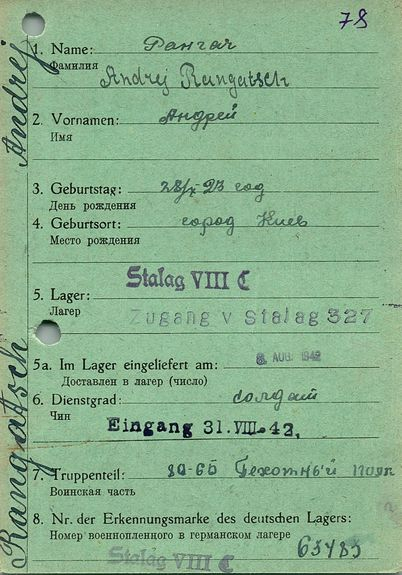 78
1. Name: Рангач
Фамилия
Andrej Rangatsch
2. Vornamen: Андрей
Имя
3. Geburtstag: 28/X 23 год
День рождения
4. Geburtsort: город Киев
Место рождения
Stalag VIII C
5. Lager:
Лагер
Zugang v Stalag 327
5a. Im Lager eingeliefert am: 8. AUG. 1942
Доставлен в лагер (число)
6. Dienstgrad: солдат
Чин
Eingang 31.VIII.42.
7. Truppenteil: Пехотный полк
Воинская часть
8. Nr. der Erkennungsmarke des deutschen Lagers:
Номер военнопленного в германском лагере
Stalag VIII C
Rangatsch Andrej